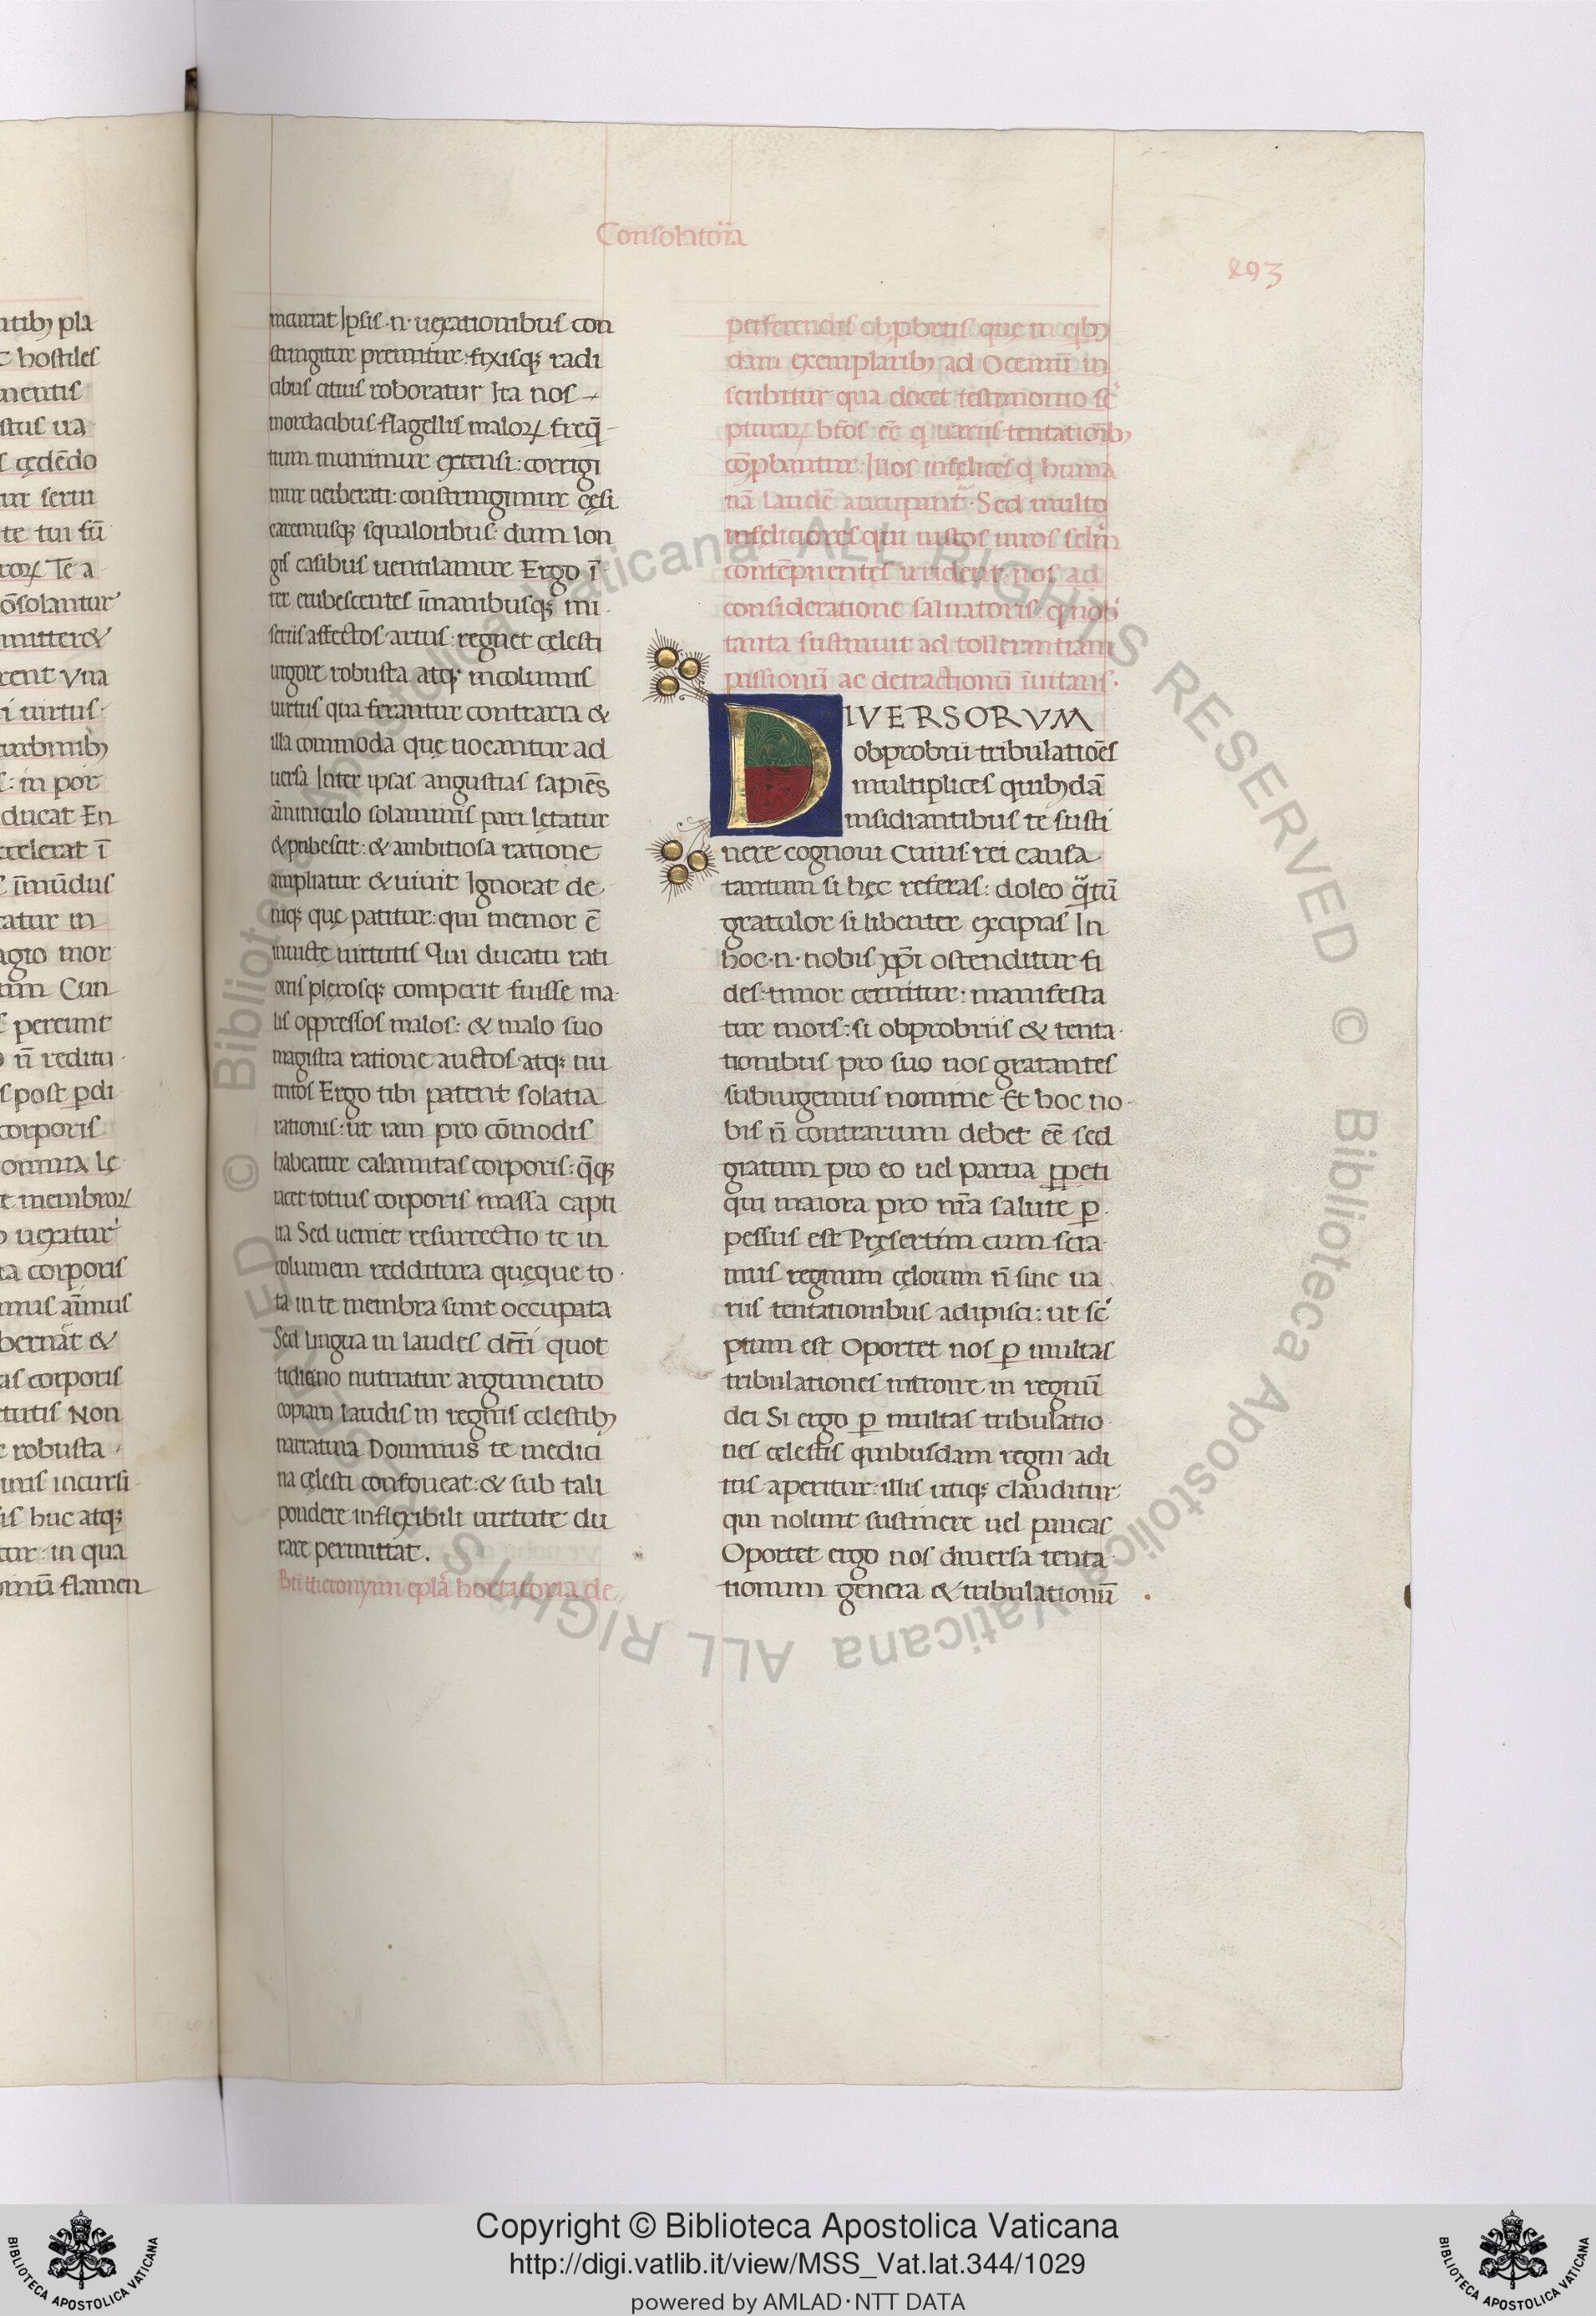 Consolatoria
293
ntibꝫ pla
t hostiles
mentis
stus ua
s cędēdo
ur serui
te tui sū
roꝝ Te a
ōsolantur
mitter&
rent Vna
i uirtus
turbinibꝫ
s: in por
ducat En
ccelerat ī
s īmūdus
catur in
agio mor
tum Cun
s pereunt
o n̄ reditu
s post ꝑdi
corporis
omnia le
t membroꝝ
o uexatur
ta corporis
mus aīmus
bernat &
as corporis
tutis Non
e robusta
mis incursi
sis huc atqꝫ
tur: in qua
omū flamen
maturat Ipsis .n. uexationibus con
stringitur premitur: fixisqꝫ radi
cibus citius roboratur Ita nos
mordacibus flagellis maloꝝ freq̄
tium munimur extensi: corrigi
mur uerberati: constringimur cęsi
carcerisqꝫ squaloribus: dum lon
gis casibus uentilamur Ergo ī
ter erubescentes īmanibusqꝫ mi
seriis affectos artus: regnet celesti
uigore robusta atqꝫ incolumis
uirtus qua ferantur contraria &
illa commoda que uocantur ad
uersa Inter ipsas angustias sapiēs
aīminiculo solaminis pari letatur
& pubescit: & ambitiosa ratione
ampliatur & uiuit Ignorat de
niqꝫ quę patitur: qui memor ē
inuictę uirtutis Qui ducatu rati
onis plerosqꝫ comperit fuisse ma
lis oppressos malos: & malo suo
magistra ratione auctos atqꝫ nu
tritos Ergo tibi patent solatia
rationis: ut iam pro cōmodis
habeatur calamitas corporis: q̄qꝫ
iacet totius corporis massa capti
ua Sed ueniet resurrectio te in
columem redditura queque to
ta in te membra sunt occupata
Sed lingua in laudes dnī quot
tidiano nutriatur argumento
copiam laudis in regnis celestibꝫ
narratura Dominus te medici
na cęlesti confoueat: & sub tali
pondere inflexibili uirtute du
rare permittat.
Bti Hieronymi epla hortatoria de
perferendis obꝓbriis quę in qbꝫ
dam exemplaribꝫ ad Oceanū in
scribitur qua docet testimonio sc
pturaꝝ btos ee q uariis tentationibꝫ
cōpbantur: Illos infelices q huma
nā laudē aucupant: Sed multo
infeliciores qui iustos uiros selm
contēpnentes irrident: nos ad
consideratione saluatoris q nob
tanta sustinuit ad tollerantiam
passionū ac detractionū īuitans.
DIVERSORVM
obprobrii tribulatiōes
multiplices quibꝫdā
insidiantibus te susti
nere cognoui Cuius rei causa
tantum si hęc referas: doleo q̄tū
gratulor si libenter excipias In
hoc .n. nobis xp̄i ostenditur fi
des: timor cernitur: manifesta
tur mors: si obprobriis & tenta
tionibus pro suo nos gratantes
subiugemus nomine Et hoc no
bis n̄ contrarium debet eē sed
gratum pro eo uel parua ꝑpeti
qui maiora pro nr̄a salute ꝑ
pessus est Pręsertim cum scia
mus regnum cęlorum n̄ sine ua
riis tentationibus adipisci: ut sc
ptum est Oportet nos ꝑ multas
tribulationes introire in regnū
dei Si ergo ꝑ multas tribulatio
nes celestis quibusdam regni adi
tus aperitur: illis utiqꝫ clauditur
qui nolunt sustinere uel paucas
Oportet ergo nos diuersa tenta
tionum genera & tribulationū
© Biblioteca Apostolica Vaticana ALL RIGHTS RESERVED © Biblioteca Apostolica Vaticana ALL RIGHTS RESERVED
Copyright © Biblioteca Apostolica Vaticana
http://digi.vatlib.it/view/MSS_Vat.lat.344/1029
powered by AMLAD·NTT DATA
BIBLIOTECA APOSTOLICA VATICANA
BIBLIOTECA APOSTOLICA VATICANA